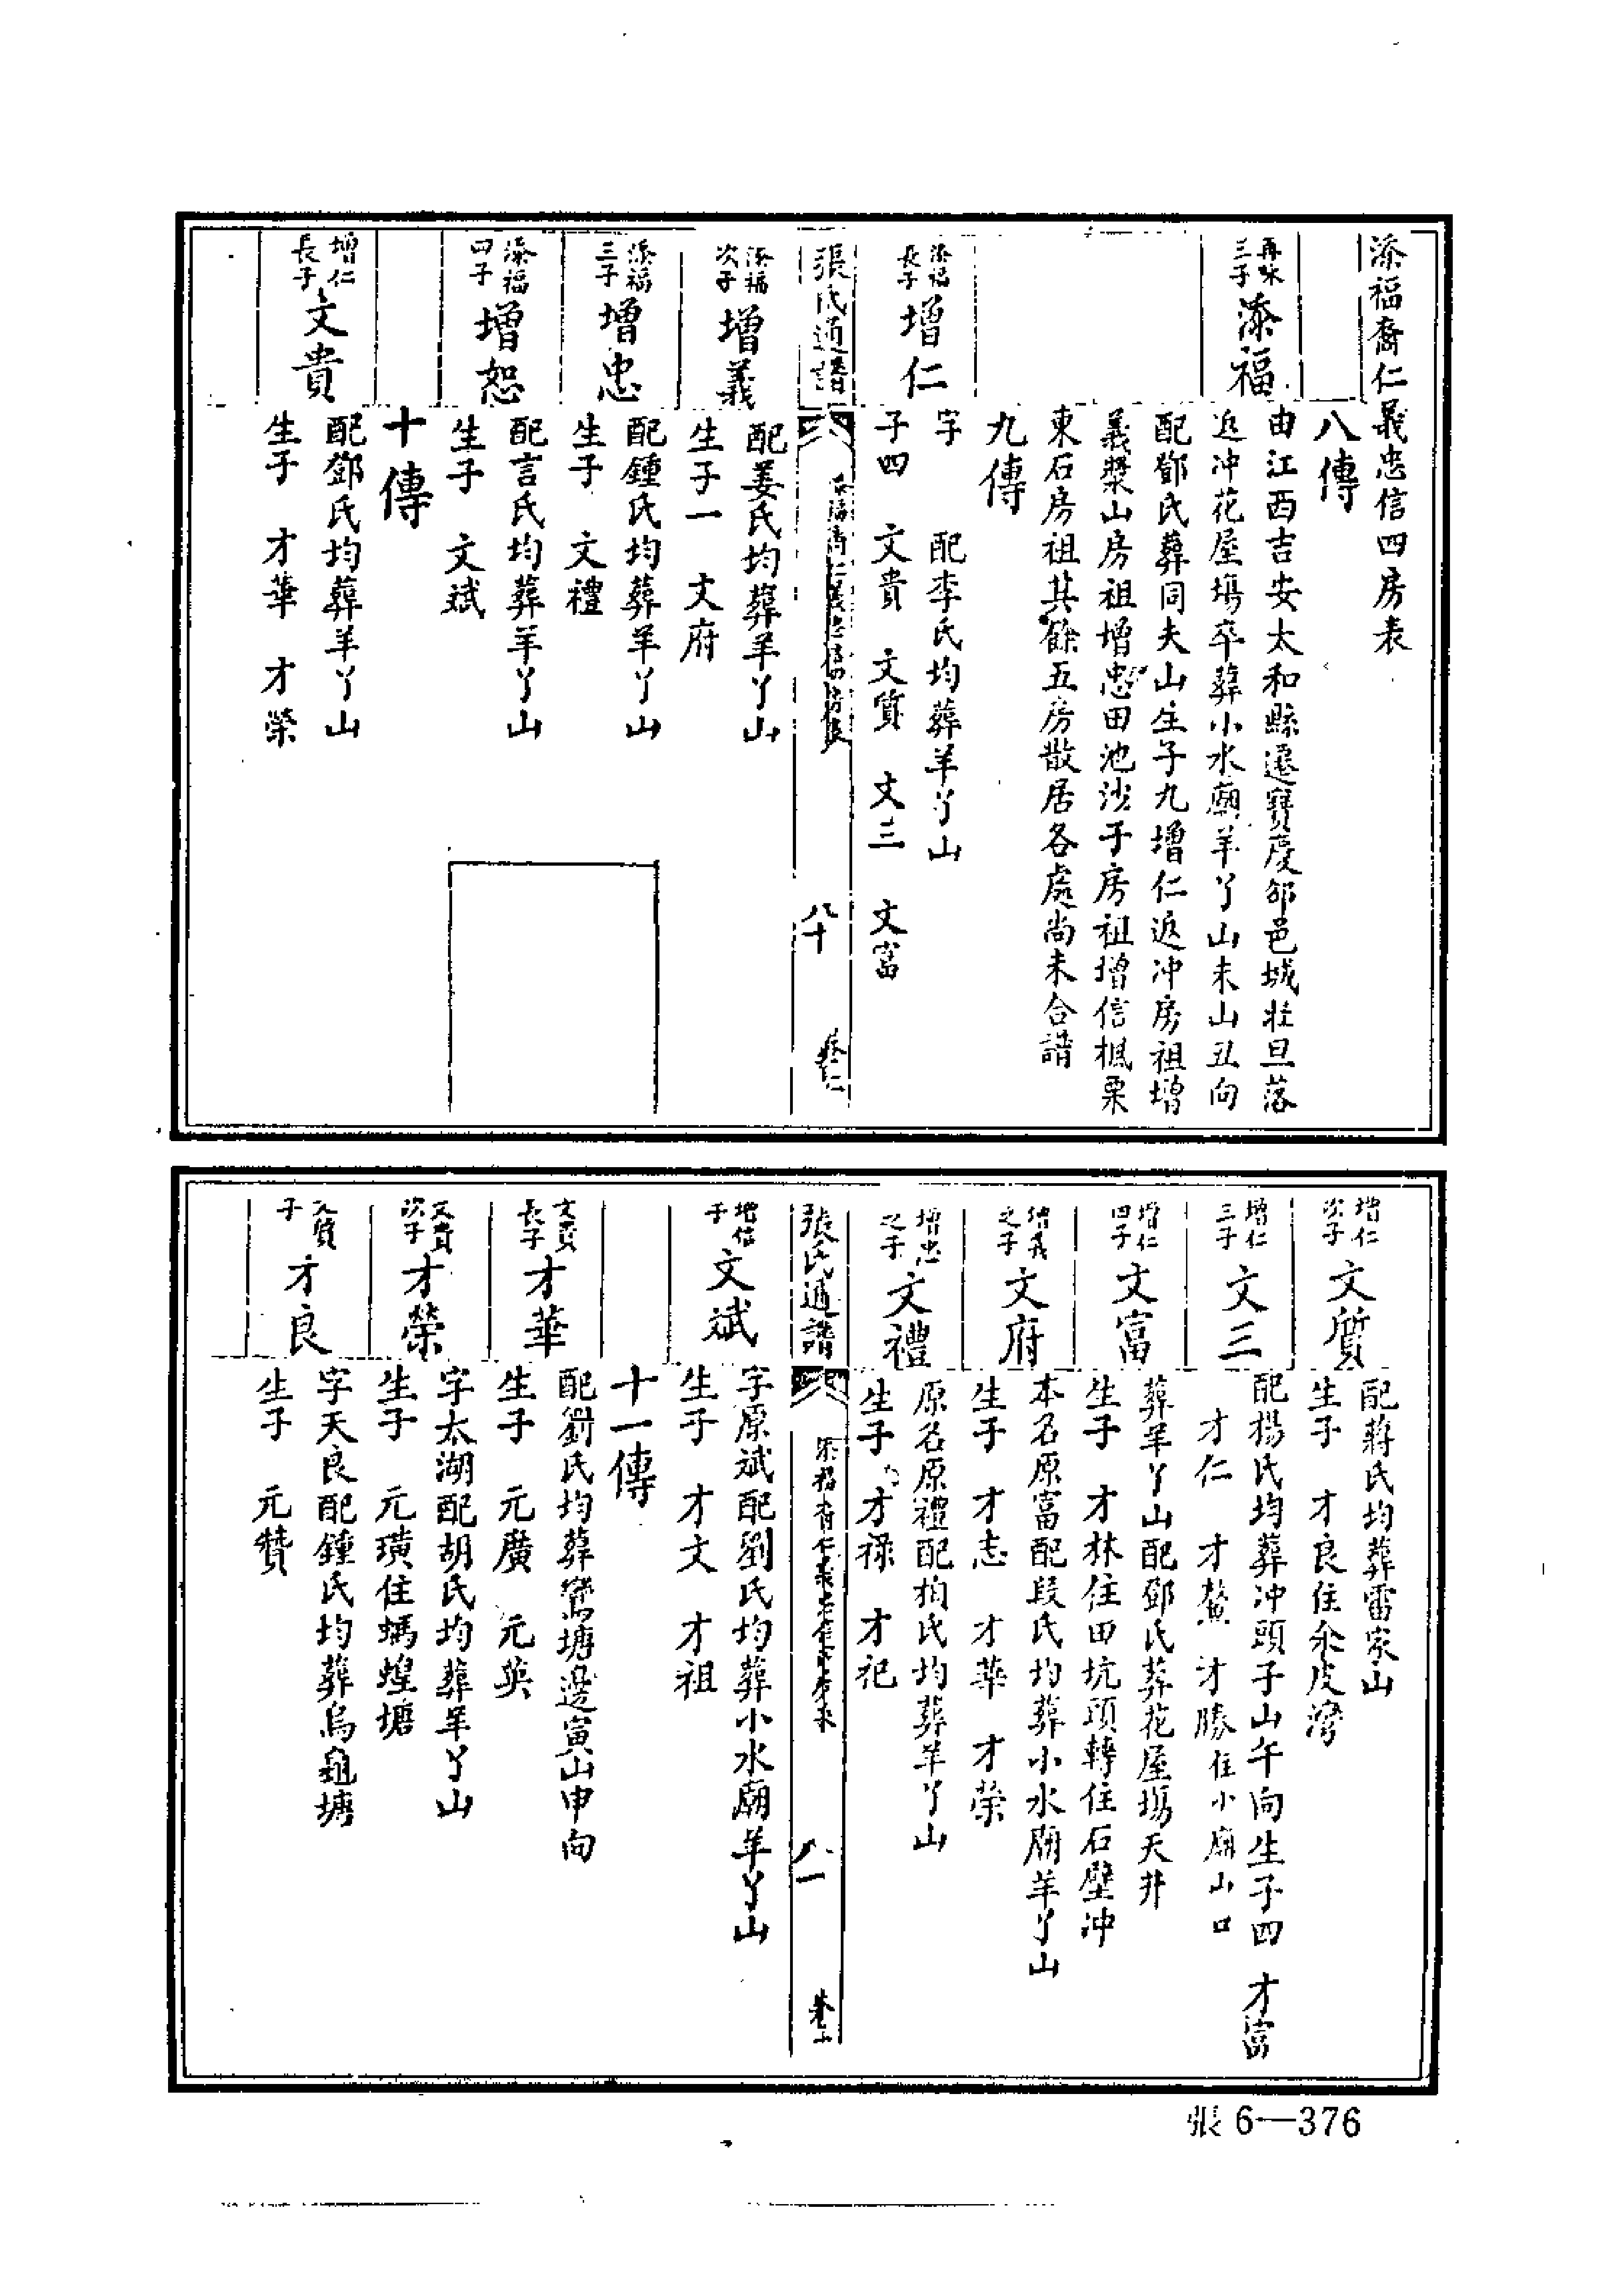 添福裔仁義忠信四房表
八傳
再味三子
添福
由江西吉安太和縣遷寶慶邵邑城壯旦落
返冲花屋塲卒葬小水廟羊丫山未山丑向
配鄧氏葬同夫山生子九增仁返冲房祖增
義漿山房祖增忠田池沙子房祖增信楓栗
東石房祖其餘五房散居各處尚未合譜
九傳
添福長子
增仁
字 配李氏均葬羊丫山
子四 文貴 文質 文三 文富
張氏通譜
添福裔仁義忠信四房表
八十
卷仁
添福次子
增義
配姜氏均葬羊丫山
生子一 文府
添福三子
增忠
配鍾氏均葬羊丫山
生子 文禮
添福四子
增恕
配言氏均葬羊丫山
生子 文斌
十傳
增仁長子
文貴
配鄧氏均葬羊丫山
生子 才華 才榮
增仁次子
文質
配蔣氏均葬雷家山
生子 才良住氽皮灣
增仁三子
文三
配楊氏均葬冲頭子山午向生子四 才富
才仁 才鰲 才勝住小廟山口
增仁四子
文富
葬羊丫山配鄧氏葬花屋塲天井
生子 才林住田坑頭轉住石壁冲
增義之子
文府
本名原富配段氏均葬小水廟羊丫山
生子 才志 才華 才榮
增忠之子
文禮
原名原禮配柏氏均葬羊丫山
生子 才祿 才祀
張氏通譜
添福裔仁義忠信四房表
八一
增信子
文斌
字原斌配劉氏均葬小水廟羊丫山
生子 才文 才祖
十一傳
文貴長子
才華
配劉氏均葬鸞塘邊寅山申向
生子 元廣 元英
文貴次子
才榮
字太湖配胡氏均葬羊丫山
生子 元璜住螞蝗塘
文質子
才良
字天良配鍾氏均葬烏龜塘
生子 元贊
張6—376